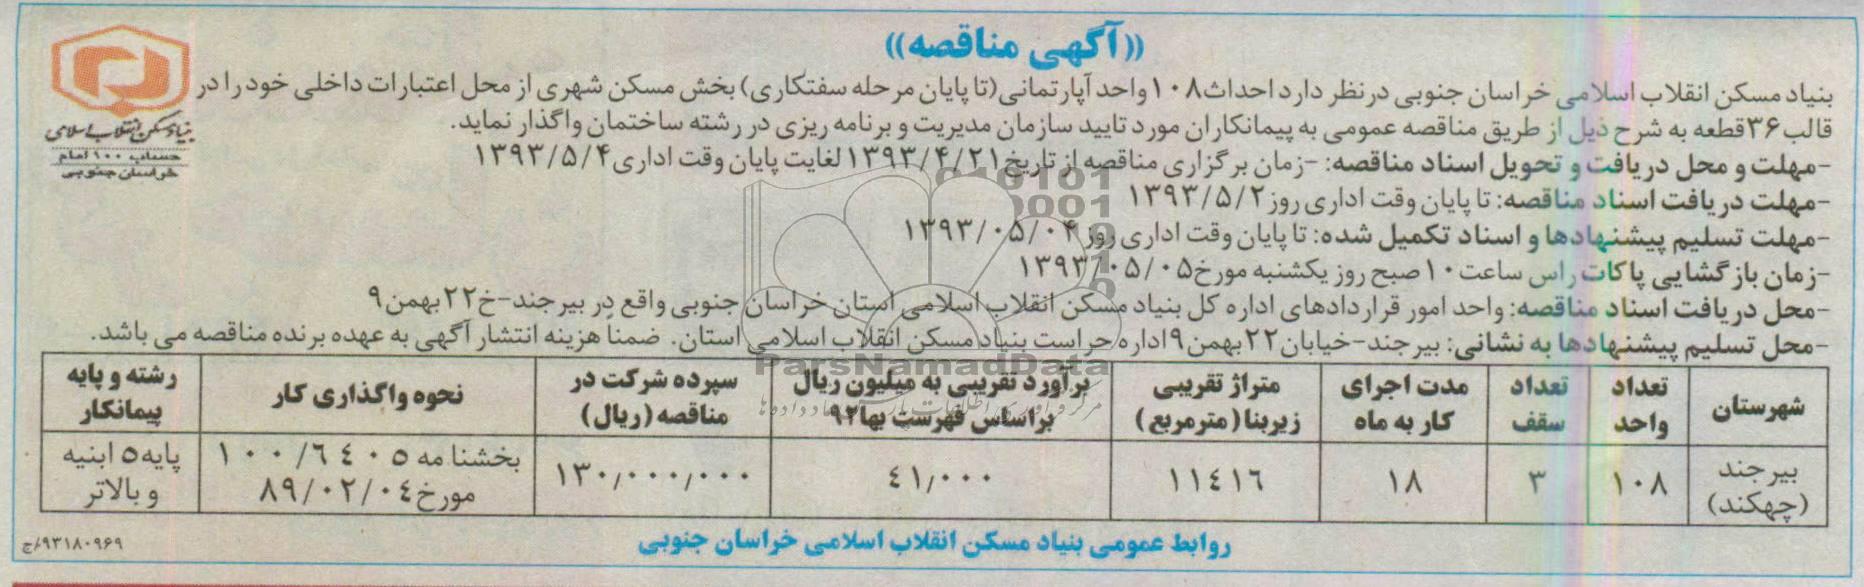 ((آگهی مناقصه))
بنیاد مسکن انقلاب اسلامی خراسان جنوبی درنظر دارد احداث۱۰۸واحد آپارتمانی(تا پایان مرحله سفتکاری) بخش مسکن شهری از محل اعتبارات داخلی خود را در
قالب۳۶قطعه به شرح ذیل از طریق مناقصه عمومی به پیمانکاران مورد تایید سازمان مدیریت و برنامه ریزی در رشته ساختمان واگذار نماید.
-مهلت و محل دریافت و تحویل اسناد مناقصه: -زمان برگزاری مناقصه از تاریخ۱۳۹۳/۴/۲۱ لغایت پایان وقت اداری۱۳۹۳/۵/۴
-مهلت دریافت اسناد مناقصه: تا پایان وقت اداری روز۱۳۹۳/۵/۲
-مهلت تسلیم پیشنهادها و اسناد تکمیل شده: تا پایان وقت اداری روز۱۳۹۳/۰۵/۰۴
-زمان بازگشایی پاکات راس ساعت۱۰صبح روز یکشنبه مورخ۱۳۹۳/۰۵/۰۵
-محل دریافت اسناد مناقصه: واحد امور قراردادهای اداره کل بنیاد مسکن انقلاب اسلامی استان خراسان جنوبی واقع در بیرجند-خ۲۲بهمن۹
-محل تسلیم پیشنهادها به نشانی: بیرجند-خیابان۲۲بهمن۹اداره حراست بنیاد مسکن انقلاب اسلامی استان. ضمنا هزینه انتشار آگهی به عهده برنده مناقصه می باشد.
بنیاد مسکن انقلاب اسلامی
حساب ۱۰۰ امام
خراسان جنوبی
ParsNamadData
شهرستان | تعداد واحد | تعداد سقف | مدت اجرای کار به ماه | متراژ تقریبی زیربنا(مترمربع) | برآورد تقریبی به میلیون ریال براساس فهرست بها۹۲ | سپرده شرکت در مناقصه(ریال) | نحوه واگذاری کار | رشته و پایه پیمانکار
بیرجند (چهکند) | ۱۰۸ | ۳ | ۱۸ | ۱۱٤۱٦ | ٤۱/۰۰۰ | ۱۳۰/۰۰۰/۰۰۰ | بخشنامه ۱۰۰/٦٤۰۵ مورخ۸۹/۰۲/۰٤ | پایه۵ ابنیه و بالاتر
روابط عمومی بنیاد مسکن انقلاب اسلامی خراسان جنوبی
۹۳۱۸۰۹۶۹/ج